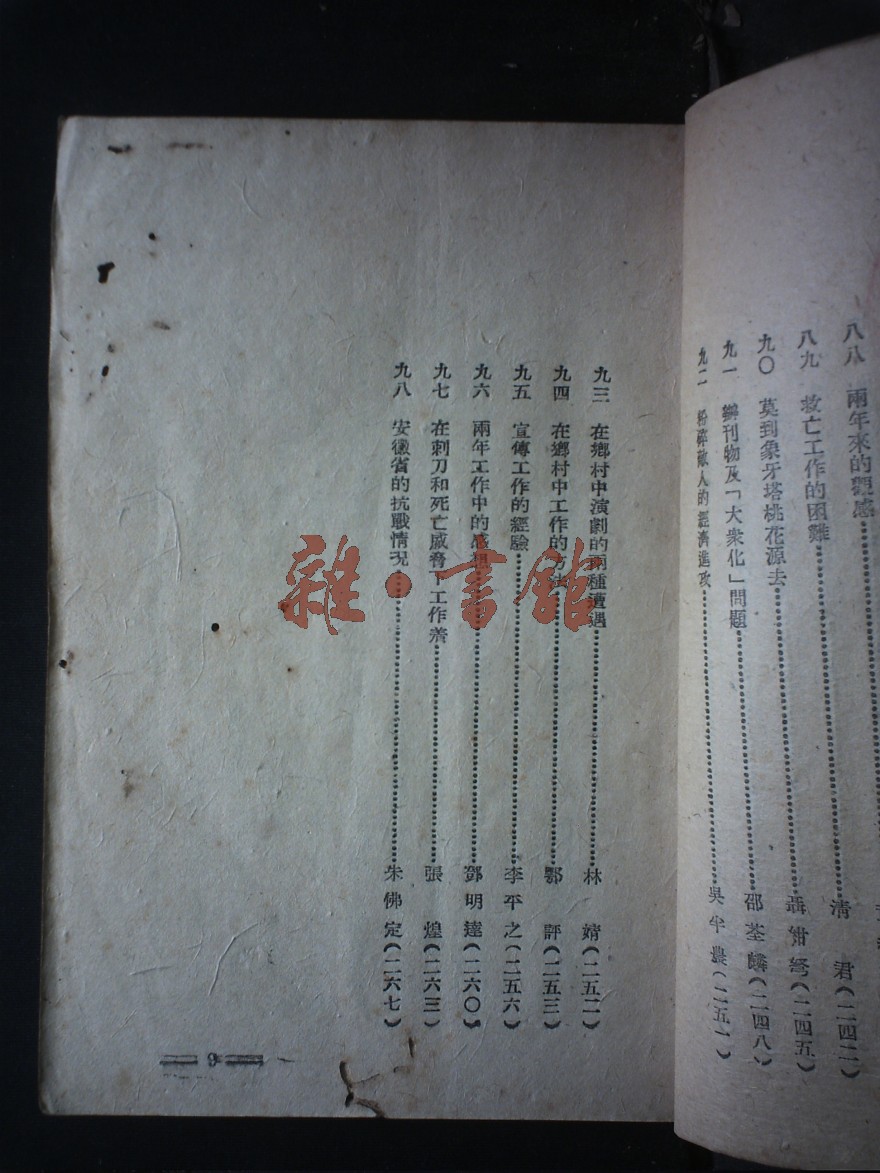 八八　兩年來的觀感……清　君（二四二）
八九　救亡工作的困難……聶紺弩（二四五）
九〇　莫到象牙塔桃花源去……邵荃麟（二四八）
九一　辦刊物及「大衆化」問題……
九二　粉碎敵人的經濟進攻……吳半農（二五一）
九三　在鄉村中演劇的兩種遭遇……林　婧（二五二）
九四　在鄉村中工作的方法……鄂　評（二五三）
九五　宣傳工作的經驗……李平之（二五六）
九六　兩年工作中的感想……鄧明達（二六〇）
九七　在刺刀和死亡威脅下工作着……張　煌（二六三）
九八　安徽省的抗戰情况……朱佛定（二六七）
9
雜·書館